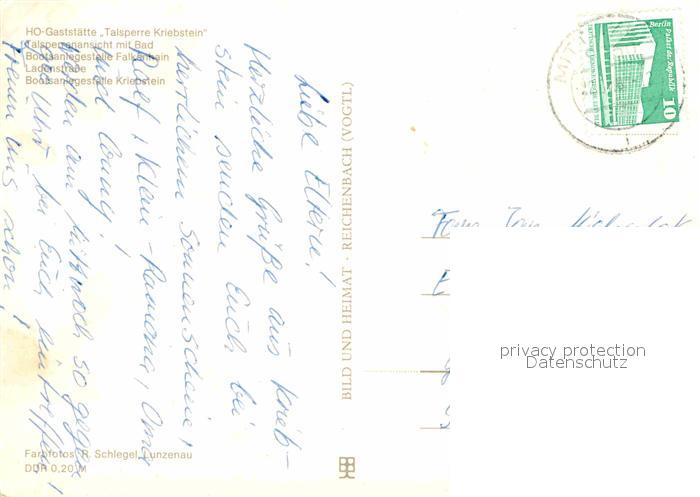 HO-Gaststätte „Talsperre Kriebstein"
Talsperrenansicht mit Bad
Bootsanlegestelle Falkenhain
Ladenstraße
Bootsanlegestelle Kriebstein
Liebe Eltern!
Herzliche Grüße aus Krieb-
stein senden Euch bei
herrlichem Sonnenschein,
Rolf, Klein-Ramona, Oma
und Conny!
Werden am Mittwoch so gegen
Uhr bei Euch eintreffen!
Freuen uns schon!
Farbfotos: R. Schlegel, Lunzenau
DDR 0,20 M
BILD UND HEIMAT · REICHENBACH (VOGTL)
Berlin
Palast der Republik
10
MITT
Fam.
privacy protection
Datenschutz